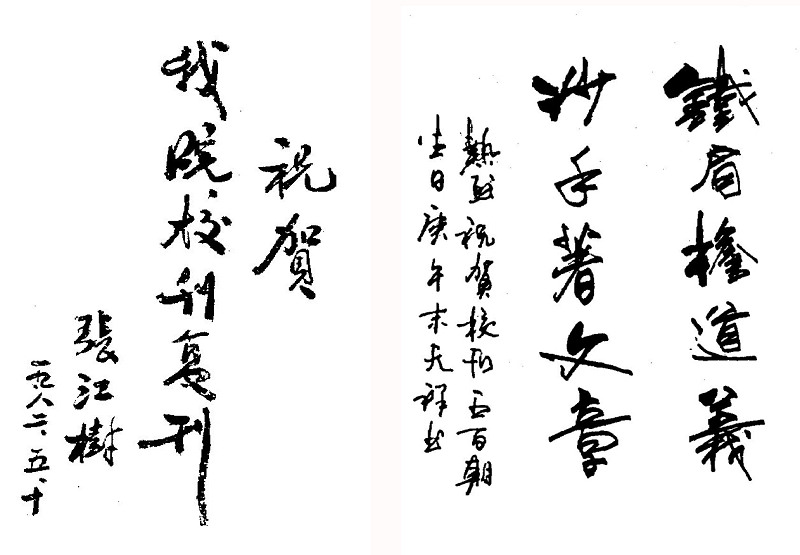 祝賀
我院校刊复刊
張江樹
一九八二、五、十
鐵肩擔道義
妙手著文章
熱烈祝賀校刊五百期
生日庚午朱天祥书